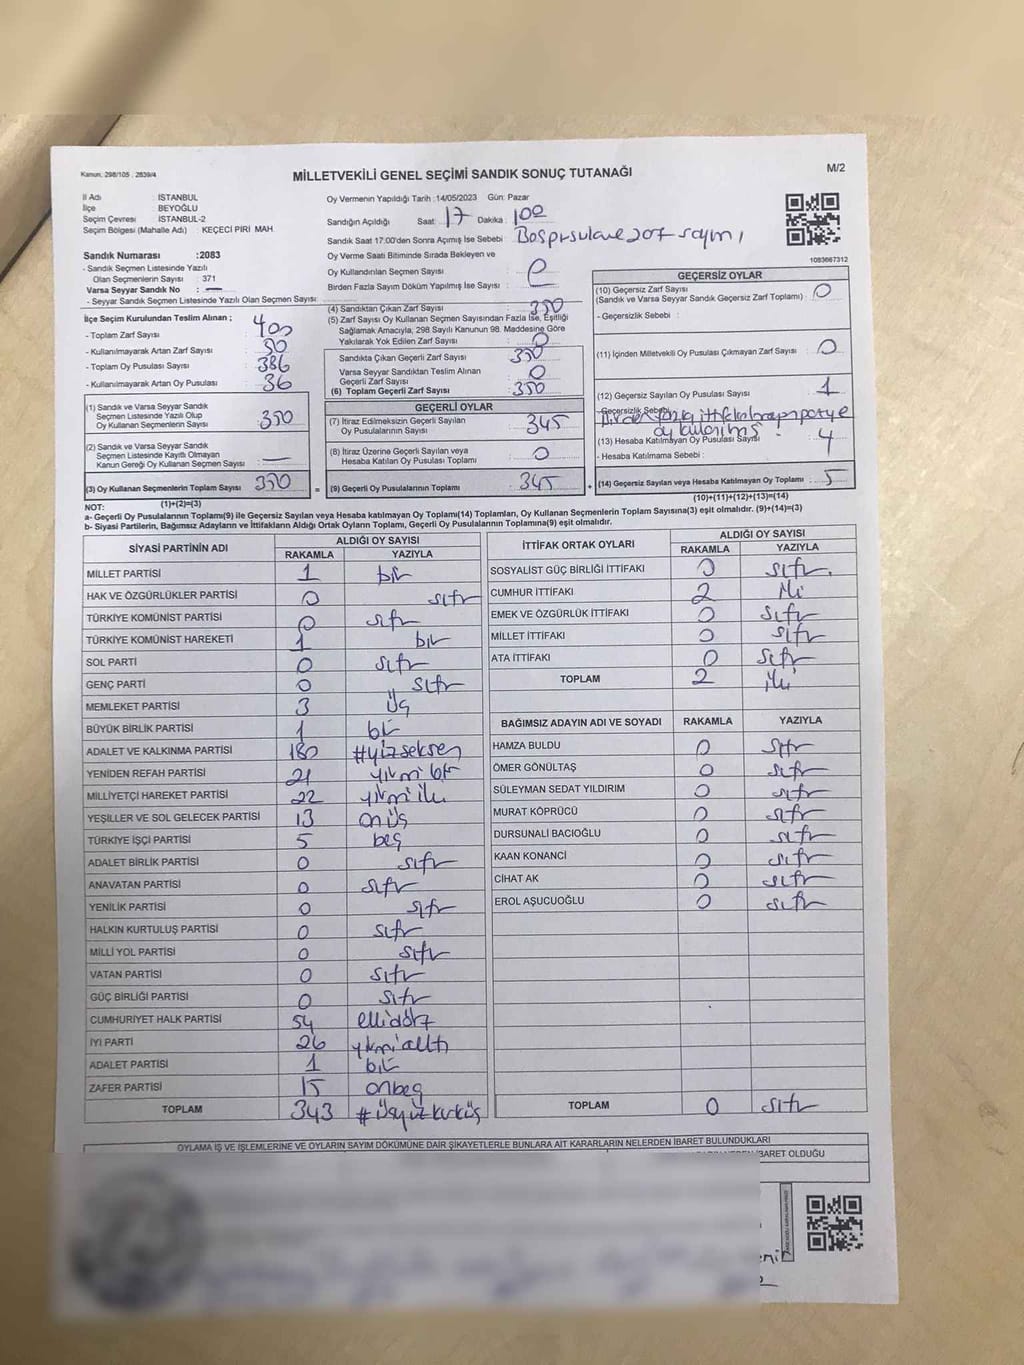 Kanun, 298/105 , 2839/4
MİLLETVEKİLİ GENEL SEÇİMİ SANDIK SONUÇ TUTANAĞI
M/2
İl Adı : İSTANBUL
İlçe : BEYOĞLU
Seçim Çevresi : İSTANBUL-2
Seçim Bölgesi (Mahalle Adı) : KEÇECİ PİRİ MAH.
Sandık Numarası :2083
- Sandık Seçmen Listesinde Yazılı
Olan Seçmenlerin Sayısı : 371
Varsa Seyyar Sandık No : —
- Seyyar Sandık Seçmen Listesinde Yazılı Olan Seçmen Sayısı:
Oy Vermenin Yapıldığı Tarih :14/05/2023 Gün: Pazar
Sandığın Açıldığı Saat : 17 Dakika :
Sandık Saat 17.00'den Sonra Açımış İse Sebebi :
Oy Verme Saati Bitiminde Sırada Bekleyen ve
Oy Kullandırılan Seçmen Sayısı :
Birden Fazla Sayım Döküm Yapılmış İse Sayısı :
1083667312
İlçe Seçim Kurulundan Teslim Alınan ;
- Toplam Zarf Sayısı : 400
- Kullanılmayarak Artan Zarf Sayısı : 50
- Toplam Oy Pusulası Sayısı : 386
- Kullanılmayarak Artan Oy Pusulası : 36
(1) Sandık ve Varsa Seyyar Sandık
Seçmen Listesinde Yazılı Olup
Oy Kullanan Seçmenlerin Sayısı : 350
(2) Sandık ve Varsa Seyyar Sandık
Seçmen Listesinde Kayıtlı Olmayan
Kanun Gereği Oy Kullanan Seçmen Sayısı : —
(3) Oy Kullanan Seçmenlerin Toplam Sayısı : 350
(1)+(2)=(3)
(4) Sandıktan Çıkan Zarf Sayısı : 350
(5) Zarf Sayısı Oy Kullanan Seçmen Sayısından Fazla İse, Eşitliği
Sağlamak Amacıyla, 298 Sayılı Kanunun 98. Maddesine Göre
Yakılarak Yok Edilen Zarf Sayısı : 0
Sandıkta Çıkan Geçerli Zarf Sayısı : 350
Varsa Seyyar Sandıktan Teslim Alınan
Geçerli Zarf Sayısı : 0
(6) Toplam Geçerli Zarf Sayısı : 350
GEÇERLİ OYLAR
(7) İtiraz Edilmeksizin Geçerli Sayılan
Oy Pusulalarının Sayısı : 345
(8) İtiraz Üzerine Geçerli Sayılan veya
Hesaba Katılan Oy Pusulası Toplamı : 0
= (9) Geçerli Oy Pusulalarının Toplamı : 345 +
GEÇERSİZ OYLAR
(10) Geçersiz Zarf Sayısı : 0
(Sandık ve Varsa Seyyar Sandık Geçersiz Zarf Toplamı)
- Geçersizlik Sebebi :
(11) İçinden Milletvekili Oy Pusulası Çıkmayan Zarf Sayısı : 0
(12) Geçersiz Sayılan Oy Pusulası Sayısı : 1
- Geçersizlik Sebebi :
(13) Hesaba Katılmayan Oy Pusulası Sayısı : 4
- Hesaba Katılmama Sebebi :
(14) Geçersiz Sayılan veya Hesaba Katılmayan Oy Toplamı : 5
(10)+(11)+(12)+(13)=(14)
NOT:
a- Geçerli Oy Pusulalarının Toplamı(9) ile Geçersiz Sayılan veya Hesaba katılmayan Oy Toplamı(14) Toplamları, Oy Kullanan Seçmenlerin Toplam Sayısına(3) eşit olmalıdır. (9)+(14)=(3)
b- Siyasi Partilerin, Bağımsız Adayların ve İttifakların Aldığı Ortak Oyların Toplamı, Geçerli Oy Pusulalarının Toplamına(9) eşit olmalıdır.
SİYASİ PARTİNİN ADI ALDIĞI OY SAYISI
RAKAMLA YAZIYLA
MİLLET PARTİSİ 1 bir
HAK VE ÖZGÜRLÜKLER PARTİSİ 0 sıfır
TÜRKİYE KOMÜNİST PARTİSİ 0 sıfır
TÜRKİYE KOMÜNİST HAREKETİ 1 bir
SOL PARTİ 0 sıfır
GENÇ PARTİ 0 sıfır
MEMLEKET PARTİSİ 3 üç
BÜYÜK BİRLİK PARTİSİ 1 bir
ADALET VE KALKINMA PARTİSİ 180 #yüzseksen
YENİDEN REFAH PARTİSİ 21 yirmi bir
MİLLİYETÇİ HAREKET PARTİSİ 22 yirmi iki
YEŞİLLER VE SOL GELECEK PARTİSİ 13 onüç
TÜRKİYE İŞÇİ PARTİSİ 5 beş
ADALET BİRLİK PARTİSİ 0 sıfır
ANAVATAN PARTİSİ 0 sıfır
YENİLİK PARTİSİ 0 sıfır
HALKIN KURTULUŞ PARTİSİ 0 sıfır
MİLLİ YOL PARTİSİ 0 sıfır
VATAN PARTİSİ 0 sıfır
GÜÇ BİRLİĞİ PARTİSİ 0 sıfır
CUMHURİYET HALK PARTİSİ 54 ellidört
İYİ PARTİ 26 yirmialtı
ADALET PARTİSİ 1 bir
ZAFER PARTİSİ 15 onbeş
TOPLAM 343 #üçyüzkırküç
İTTİFAK ORTAK OYLARI ALDIĞI OY SAYISI
RAKAMLA YAZIYLA
SOSYALİST GÜÇ BİRLİĞİ İTTİFAKI 0 sıfır
CUMHUR İTTİFAKI 2 iki
EMEK VE ÖZGÜRLÜK İTTİFAKI 0 sıfır
MİLLET İTTİFAKI 0 sıfır
ATA İTTİFAKI 0 sıfır
TOPLAM 2 iki
BAĞIMSIZ ADAYIN ADI VE SOYADI RAKAMLA YAZIYLA
HAMZA BULDU 0 sıfır
ÖMER GÖNÜLTAŞ 0 sıfır
SÜLEYMAN SEDAT YILDIRIM 0 sıfır
MURAT KÖPRÜCÜ 0 sıfır
DURSUNALİ BACIOĞLU 0 sıfır
KAAN KONANCİ 0 sıfır
CİHAT AK 0 sıfır
EROL AŞUCUOĞLU 0 sıfır
TOPLAM 0 sıfır
OYLAMA İŞ VE İŞLEMLERİNE VE OYLARIN SAYIM DÖKÜMÜNE DAİR ŞİKAYETLERLE BUNLARA AİT KARARLARIN NELERDEN İBARET BULUNDUKLARI
İBARET OLDUĞU